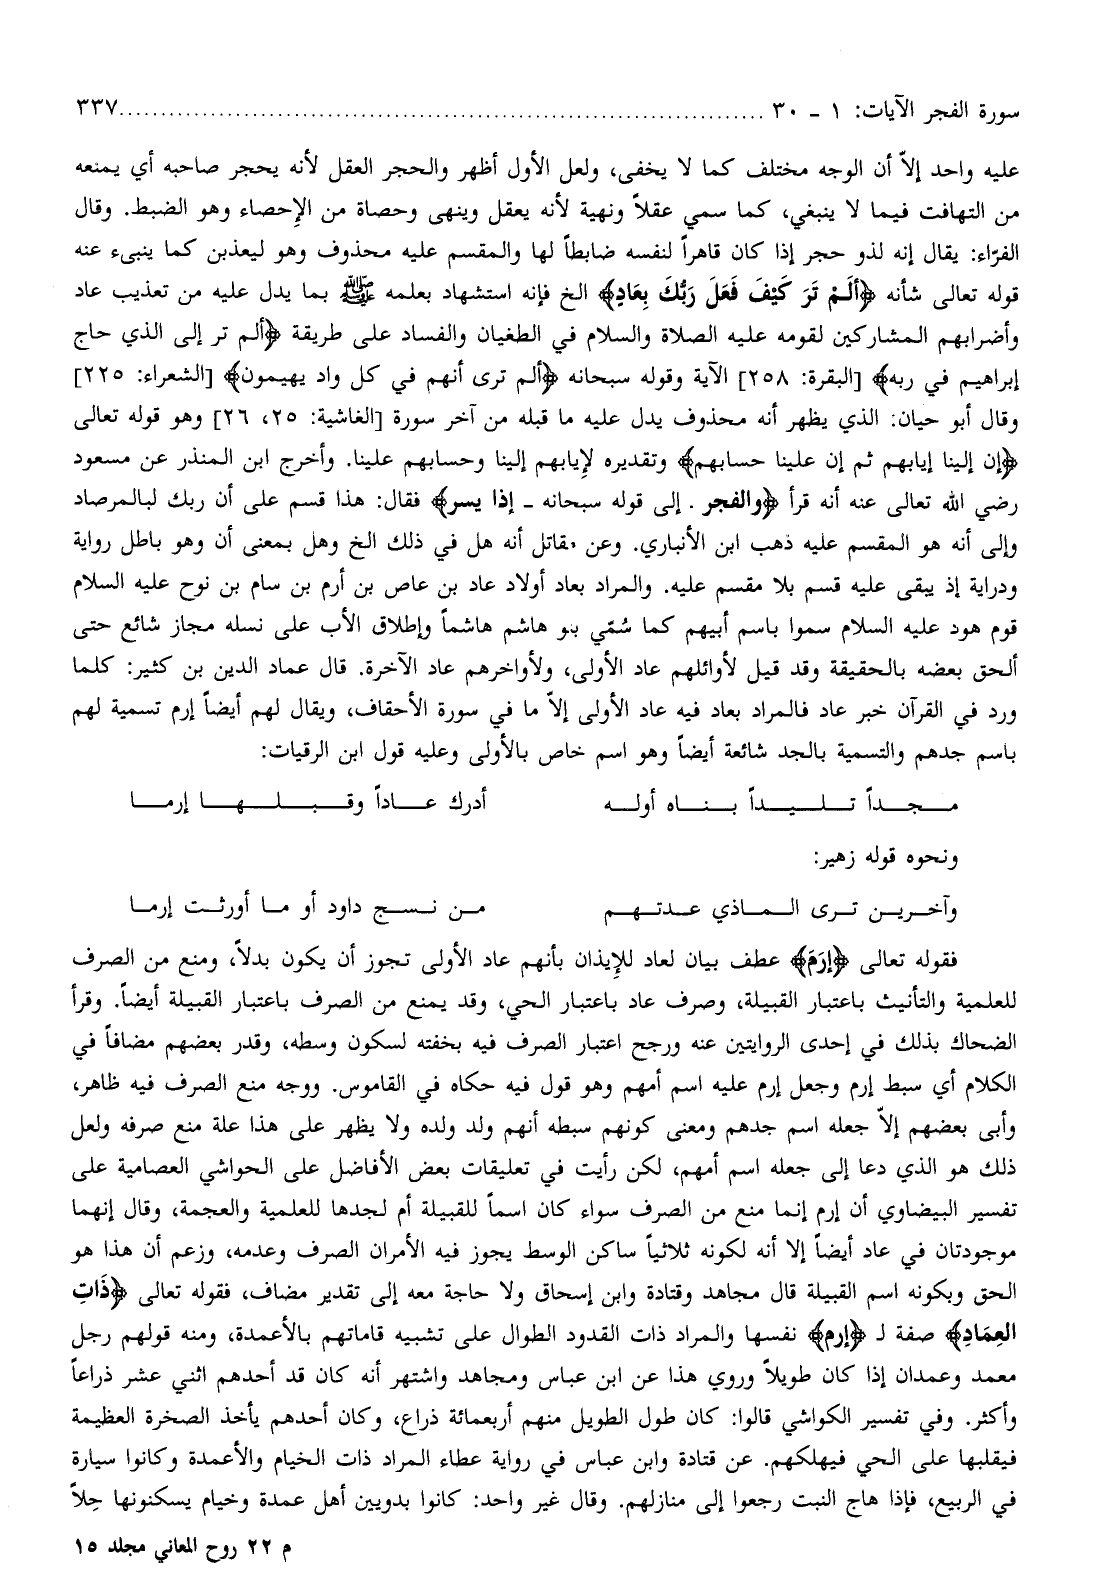 سورة الفجر الآيات: ١ - ٣٠ ........................................................................... ٣٣٧
عليه واحد إلاّ أن الوجه مختلف كما لا يخفى، ولعل الأول أظهر والحجر العقل لأنه يحجر صاحبه أي يمنعه
من التهافت فيما لا ينبغي، كما سمي عقلاً ونهية لأنه يعقل وينهى وحصاة من الإِحصاء وهو الضبط. وقال
الفرّاء: يقال إنه لذو حجر إذا كان قاهراً لنفسه ضابطاً لها والمقسم عليه محذوف وهو ليعذبن كما ينبىء عنه
قوله تعالى شأنه ﴿أَلَمْ تَرَ كَيْفَ فَعَلَ رَبُّكَ بِعَادٍ﴾ الخ فإنه استشهاد بعلمه ﷺ بما يدل عليه من تعذيب عاد
وأضرابهم المشاركين لقومه عليه الصلاة والسلام في الطغيان والفساد على طريقة ﴿ألم تر إلى الذي حاج
إبراهيم في ربه﴾ [البقرة: ٢٥٨] الآية وقوله سبحانه ﴿ألم ترى أنهم في كل واد يهيمون﴾ [الشعراء: ٢٢٥]
وقال أبو حيان: الذي يظهر أنه محذوف يدل عليه ما قبله من آخر سورة [الغاشية: ٢٥، ٢٦] وهو قوله تعالى
﴿إن إلينا إيابهم ثم إن علينا حسابهم﴾ وتقديره لإِيابهم إلينا وحسابهم علينا. وأخرج ابن المنذر عن مسعود
رضي الله تعالى عنه أنه قرأ ﴿والفجر . إلى قوله سبحانه - إذا يسر﴾ فقال: هذا قسم على أن ربك لبالمرصاد
وإلى أنه هو المقسم عليه ذهب ابن الأنباري. وعن مقاتل أنه هل في ذلك الخ وهل بمعنى أن وهو باطل رواية
ودراية إذ يبقى عليه قسم بلا مقسم عليه. والمراد بعاد أولاد عاد بن عاص بن أرم بن سام بن نوح عليه السلام
قوم هود عليه السلام سموا باسم أبيهم كما سُمّي بنو هاشم هاشماً وإطلاق الأب على نسله مجاز شائع حتى
ألحق بعضه بالحقيقة وقد قيل لأوائلهم عاد الأولى، ولأواخرهم عاد الآخرة. قال عماد الدين بن كثير: كلما
ورد في القرآن خبر عاد فالمراد بعاد فيه عاد الأولى إلاّ ما في سورة الأحقاف، ويقال لهم أيضاً إرم تسمية لهم
باسم جدهم والتسمية بالجد شائعة أيضاً وهو اسم خاص بالأولى وعليه قول ابن الرقيات:
مـجـداً تـلـيـداً بـنـاه أولـه أدرك عـاداً وقـبـلـهـا إرمـا
ونحوه قوله زهير:
وآخـريـن تـرى الـمـاذي عـدتـهـم مـن نـسـج داود أو مـا أورثـت إرمـا
فقوله تعالى ﴿إِرَمَ﴾ عطف بيان لعاد للإِيذان بأنهم عاد الأولى تجوز أن يكون بدلاً، ومنع من الصرف
للعلمية والتأنيث باعتبار القبيلة، وصرف عاد باعتبار الحي، وقد يمنع من الصرف باعتبار القبيلة أيضاً. وقرأ
الضحاك بذلك في إحدى الروايتين عنه ورجح اعتبار الصرف فيه بخفته لسكون وسطه، وقدر بعضهم مضافاً في
الكلام أي سبط إرم وجعل إرم عليه اسم أمهم وهو قول فيه حكاه في القاموس. ووجه منع الصرف فيه ظاهر،
وأبى بعضهم إلاّ جعله اسم جدهم ومعنى كونهم سبطه أنهم ولد ولده ولا يظهر على هذا علة منع صرفه ولعل
ذلك هو الذي دعا إلى جعله اسم أمهم، لكن رأيت في تعليقات بعض الأفاضل على الحواشي العصامية على
تفسير البيضاوي أن إرم إنما منع من الصرف سواء كان اسماً للقبيلة أم لجدها للعلمية والعجمة، وقال إنهما
موجودتان في عاد أيضاً إلا أنه لكونه ثلاثياً ساكن الوسط يجوز فيه الأمران الصرف وعدمه، وزعم أن هذا هو
الحق وبكونه اسم القبيلة قال مجاهد وقتادة وابن إسحاق ولا حاجة معه إلى تقدير مضاف، فقوله تعالى ﴿ذَاتِ
العِمَادِ﴾ صفة لـ ﴿إرم﴾ نفسها والمراد ذات القدود الطوال على تشبيه قاماتهم بالأعمدة، ومنه قولهم رجل
معمد وعمدان إذا كان طويلاً وروي هذا عن ابن عباس ومجاهد واشتهر أنه كان قد أحدهم اثني عشر ذراعاً
وأكثر. وفي تفسير الكواشي قالوا: كان طول الطويل منهم أربعمائة ذراع، وكان أحدهم يأخذ الصخرة العظيمة
فيقلبها على الحي فيهلكهم. عن قتادة وابن عباس في رواية عطاء المراد ذات الخيام والأعمدة وكانوا سيارة
في الربيع، فإذا هاج النبت رجعوا إلى منازلهم. وقال غير واحد: كانوا بدويين أهل عمدة وخيام يسكنونها حِلاً
م ٢٢ روح المعاني مجلد ١٥